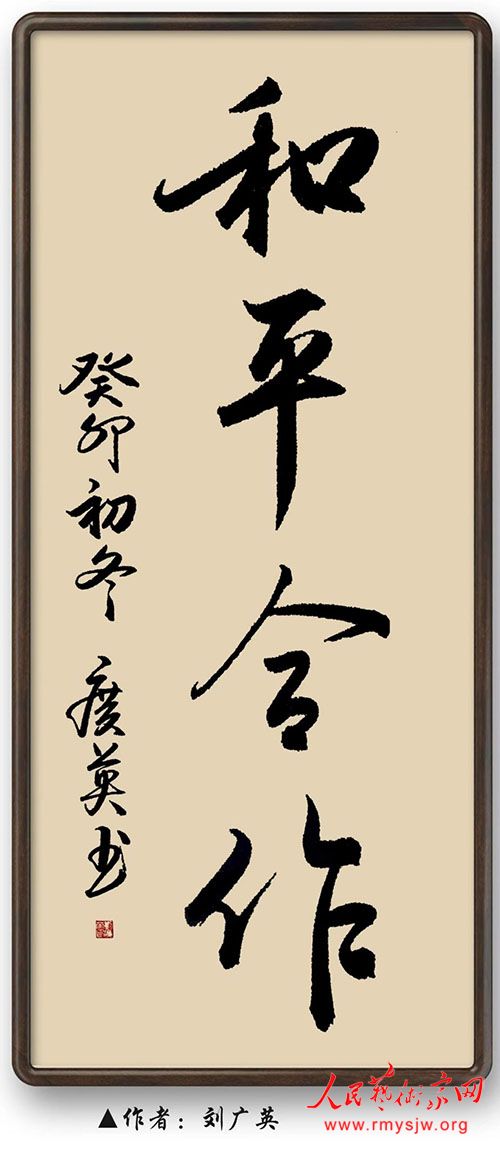 和平合作
癸卯初冬 广英书
▲作者：刘广英
人民艺术家网
www.rmysjw.org